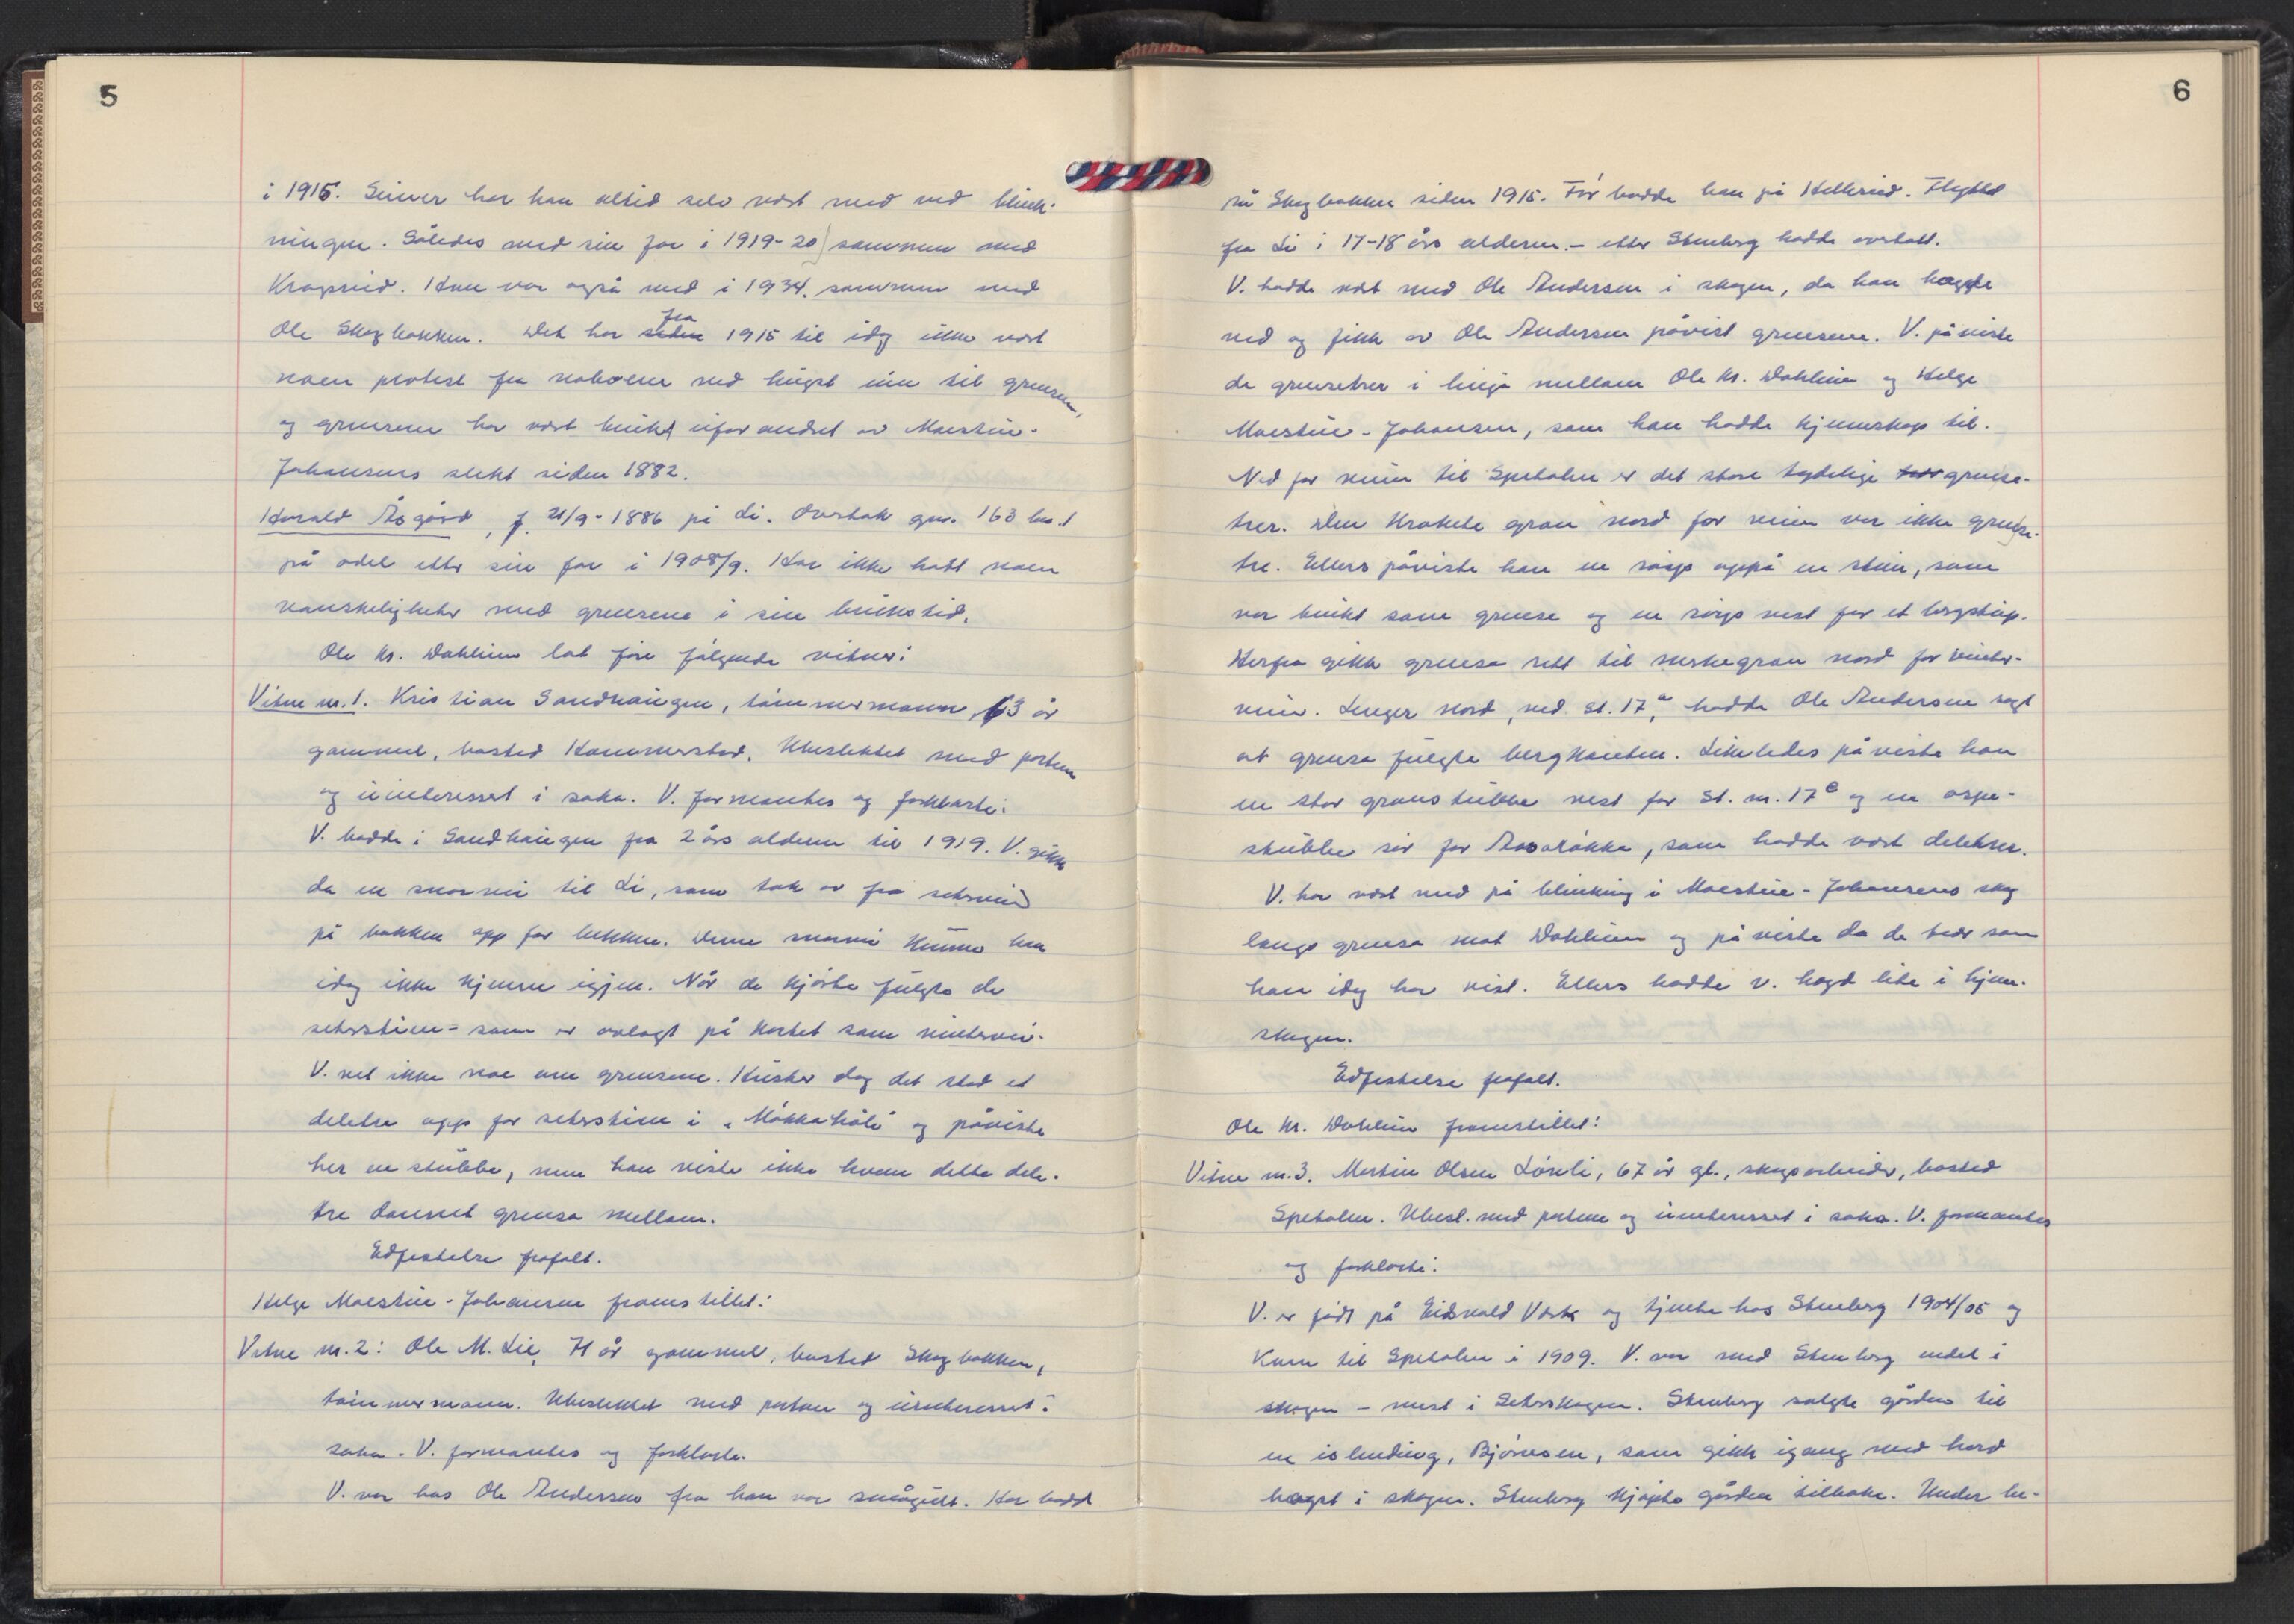 5
i 1915. Seiner har han altid selv vært med ved blink-
ningen. Således med sin far i 1919-20 sammen med
Kragsveid. Han var også med i 1934. sammen med
Ole Skogbakken. Det har fra 1915 til idag ikke vært
noen protest fra naboene ved hugst inn til grensen,
og grensene har vært brukt uforandret av Maestue-
Johansens slekt siden 1882.
Harald Åsgård, f. 21/9-1886 på Li. Overtok gnr. 163 bnr. 1
på odel etter sin far i 1908/9. Har ikke hatt noen
vanskeligheter med grensene i sin brukstid.
Ole Kr. Dahlum lot føre følgende vitner:
Vitne nr. 1. Kristian Sandhaugen, tømmermann, 63 år
gammel, bosted Hammerstad. Ubeslektet med partene
og uinteressert i saka. V. formantes og forklarte:
V. bodde i Sandhaugen fra 2 års alderen til 1919. V. gikk
da en snarvei til Li, som tok av fra seterveien
på bakken opp for bekken. Denne snarvei kunne han
idag ikke kjenne igjen. Når de kjørte fulgte de
seterstien - som er avlagt på kartet som vintervei.
V. vet ikke noe om grensene. Husker dog det stod et
deletre opp for seterstien i "Mókkahóli" og påviste
her en stubbe, men han visste ikke hvem dette dele-
tre dannet grensa mellom.
Edfestelse frafalt.
Helge Maestue-Johansen framstillet:
Vitne nr. 2: Ole M. Lie, 71 år gammel, bosted Skogbakken,
tømmermann. Ubeslektet med partene og uinteressert i
saka. V. formantes og forklarte.
V. var hos Ole Andersen fra han var smågutt. Har bodd
6
på Skogbakken siden 1915. Før bodde han på Hellerud. Flyttet
fra Li i 17-18 års alderen. - etter Stenberg hadde overtatt.
V. hadde vært med Ole Andersen i skogen, da han hogde
ved og fikk av Ole Andersen påvist grensene. V. påviste
de grensetrer i linja mellom Ole Kr. Dahlum og Helge
Maestue-Johansen, som han hadde kjennskap til.
Ned for veien til Spetalen er det store tydelige grense-
trer. Den krokete gran nord for veien var ikke grense-
tre. Ellers påviste han en søyp oppå en stein, som
var brukt som grense og en søyp vest for et bergstup.
Herfra gikk grensa rett til merkegran nord for vinter-
veien. Lenger nord, ved st. 17a, hadde Ole Andersen sagt
at grensa fulgte bergkanten. Likeledes påviste han
en stor granstubbe vest for st. nr. 17e og en ospe-
stubbe sør for Aasaråkka, som hadde vært deletrer.
V. har vært med på blinking i Maestue-Johansens skog
langs grensa mot Dahlum og påviste da de trær som
han idag har vist. Ellers hadde v. hogd lite i hjem-
skogen.
Edfestelse frafalt.
Ole Kr. Dahlum framstillet:
Vitne nr. 3. Martin Olsen Lóreli, 67 år gl., skogsarbeider, bosted
Spetalen. Ubesl. med partene og uinteressert i saka. V. formantes
og forklarte:
V. er født på Eidsvold Værk og tjente hos Stenberg 1904/05 og
kom til Spetalen i 1909. V. var med Stenberg endel i
skogen - mest i Seterskogen. Stenberg solgte gården til
en islending, Bjørnsen, som gikk igang med hard
hogst i skogen. Stenberg kjøpte gården tilbake. Under be-